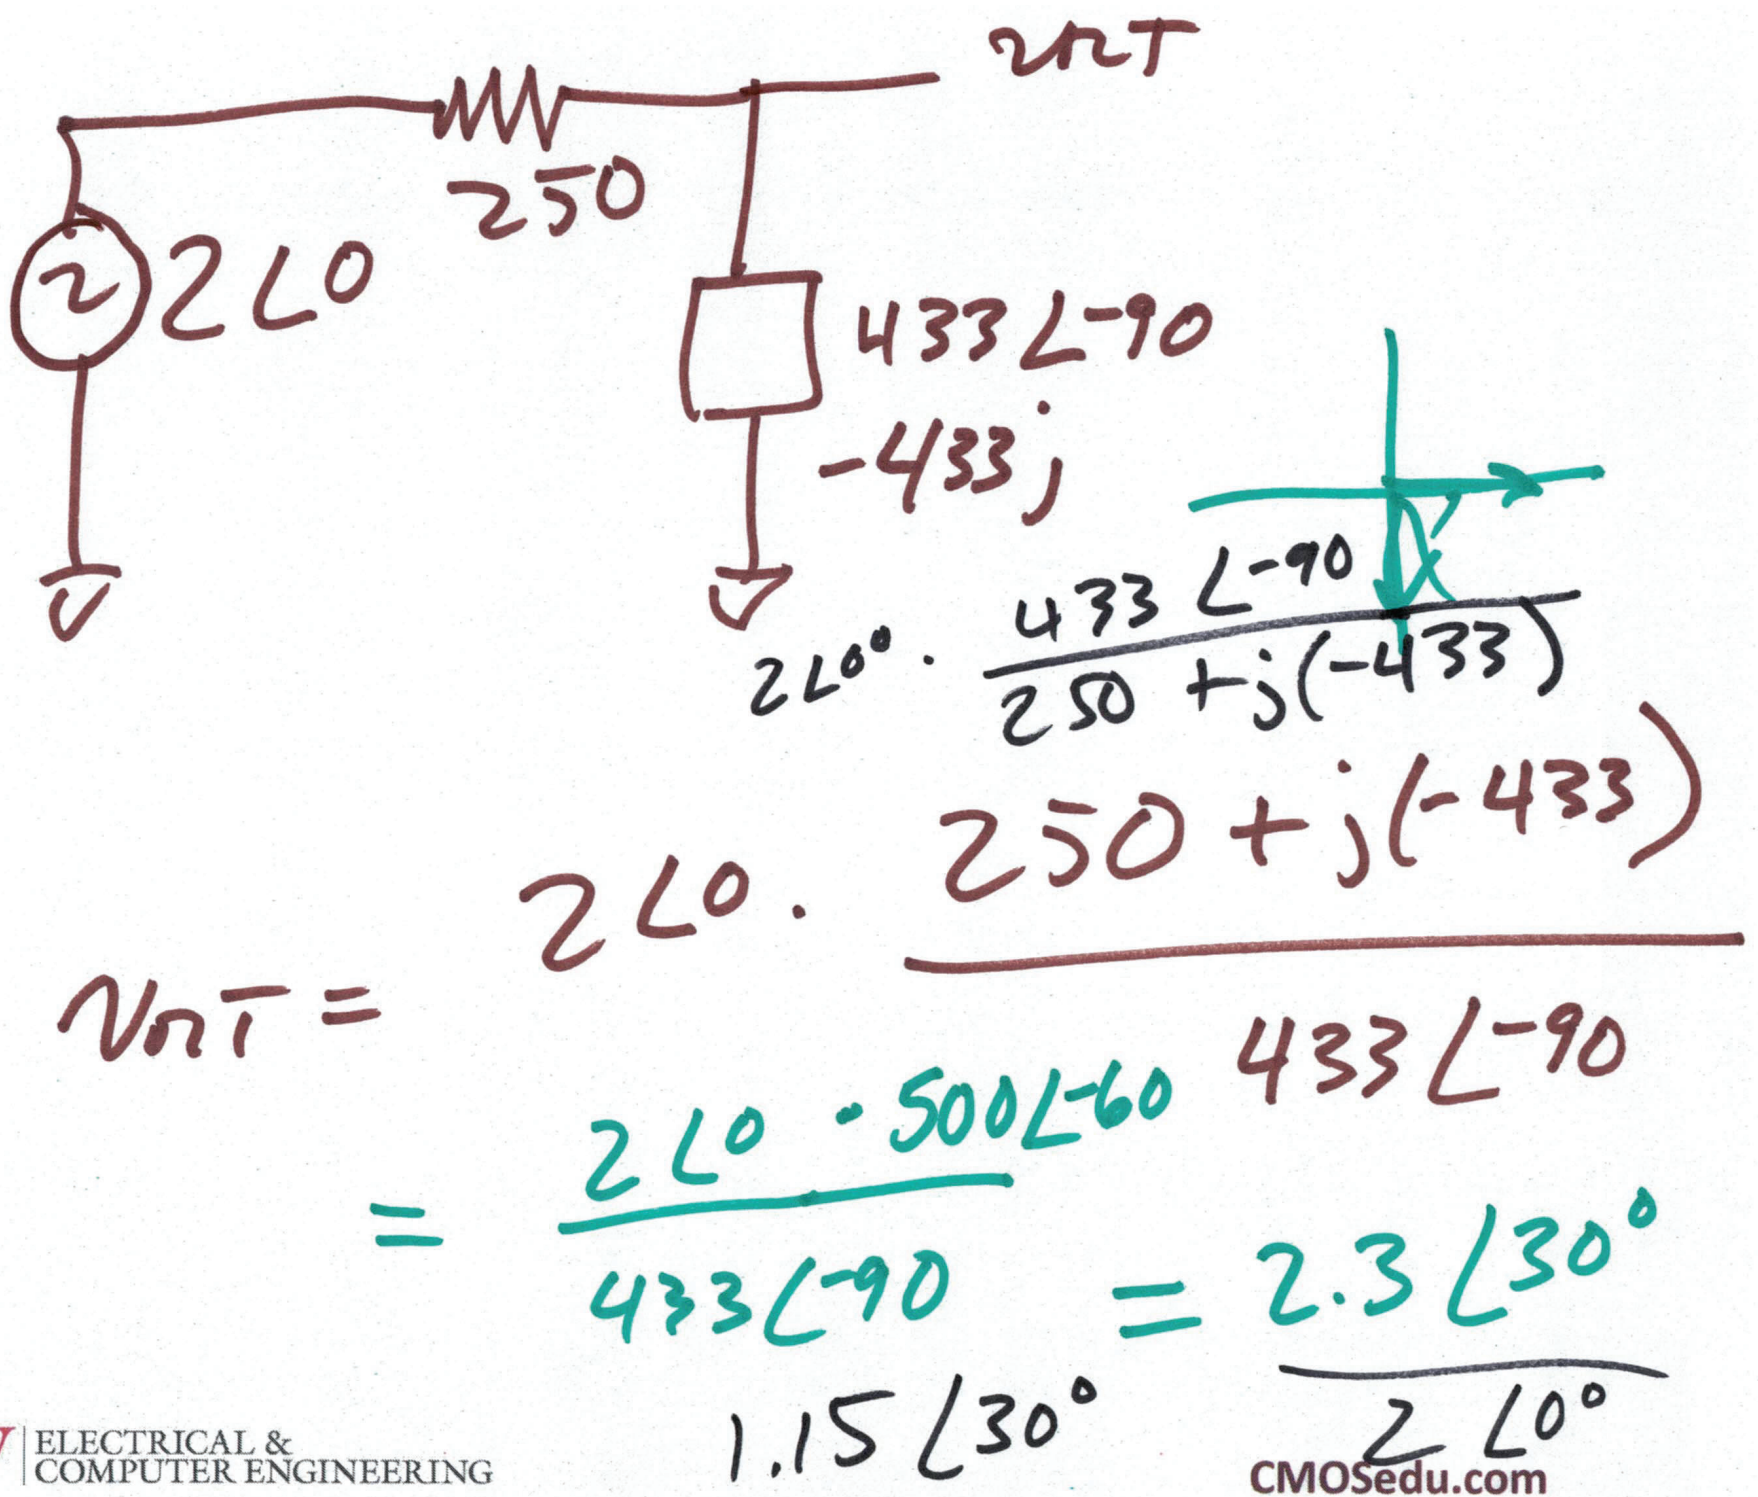 vout
250
~ 2∠0
433∠-90
-433j
2∠0° · 433∠-90 / 250 + j(-433)
vout = 2∠0 · 250 + j(-433) / 433∠-90
= 2∠0 · 500∠-60 / 433∠-90 = 2.3∠30°
1.15∠30°
2∠0°
ELECTRICAL &
COMPUTER ENGINEERING
CMOSedu.com